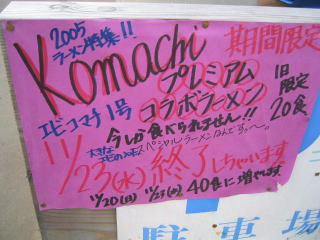 2005
ラーメン特集!!
Komachi
期間限定
プレミアム
エビコマチ1号
コラボラーメン
1日
限定
20食
今しか食べられません!!
スペシャルラーメンなんですっ〜。
11/23(水)終了しちゃいます
11/20(日) 11/23(水) 40食に増やします
駐車場